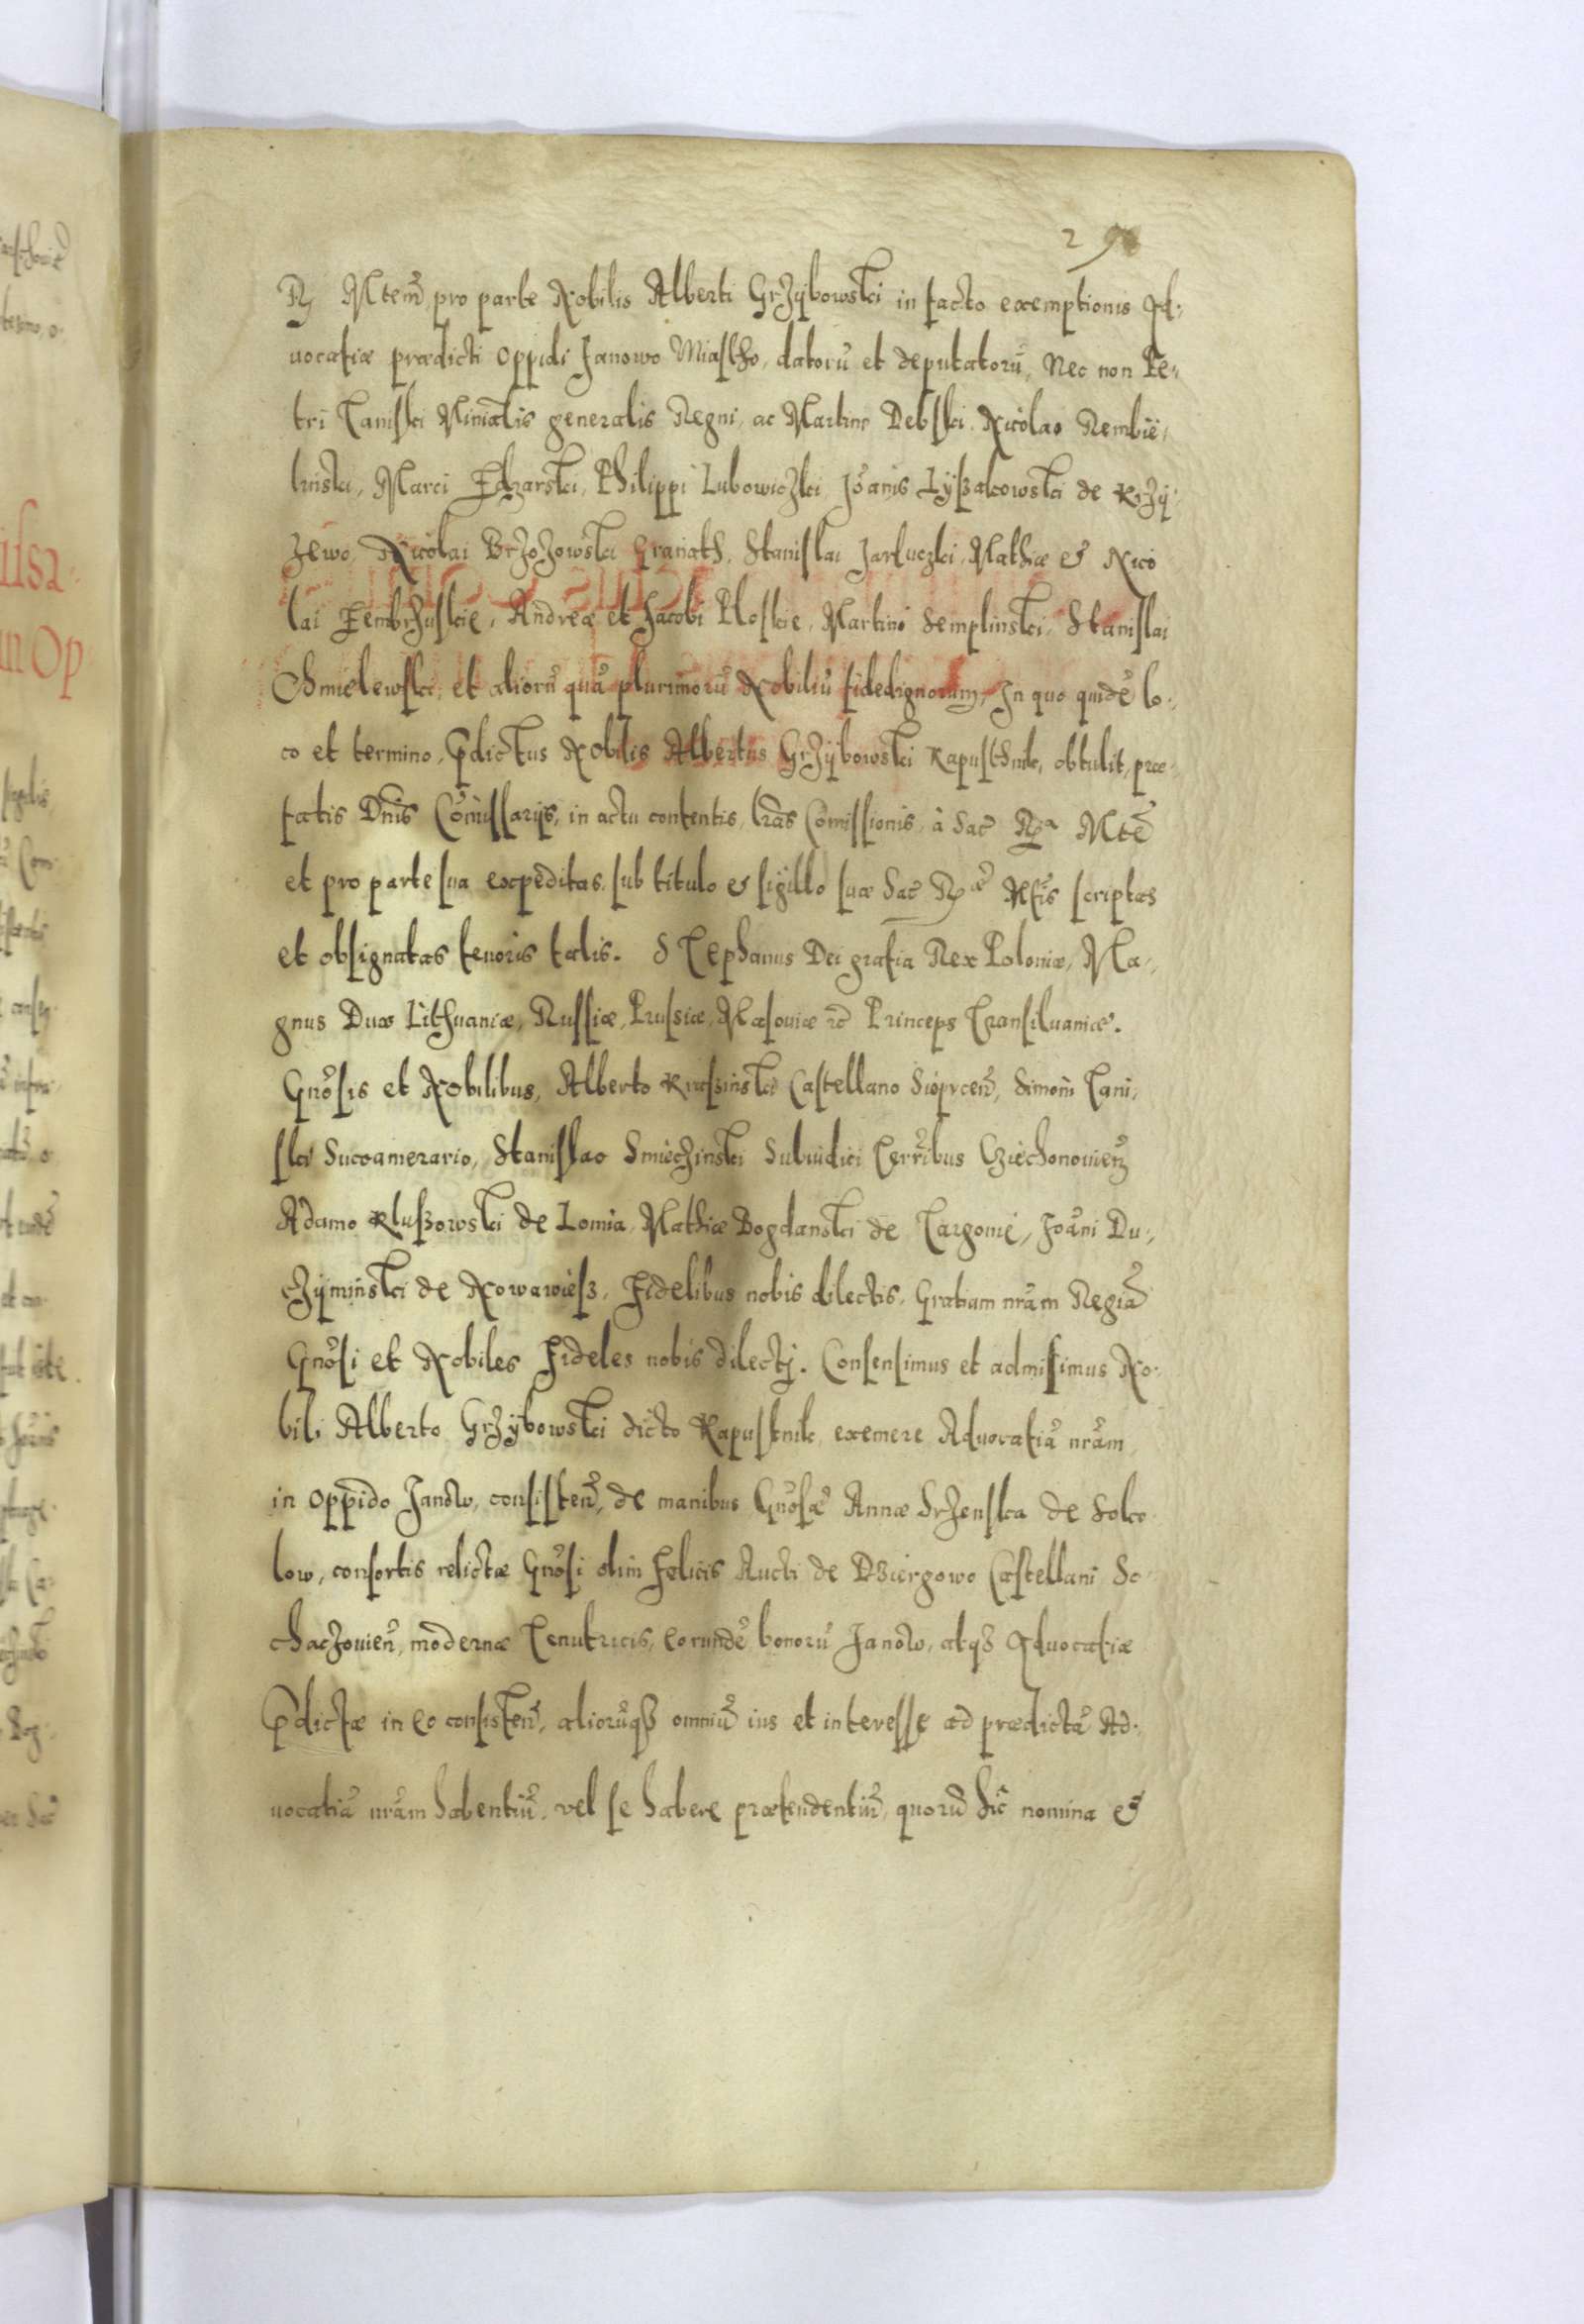 2
Rx Mtem̃ pro parte Nobilis Alberti Grzÿbowski in facto exemptionis Ad-
uocatiæ prædicti Oppidi Janowo Miastho, datorũ et deputatorũ, Nec non Pe-
tri Taniski Miniãlis generalis Regni, ac Martino Debski, Nicolao Rembie-
linski, Marci Philippi Lubowiczki, Joãnis Lyßakowski de Krzÿ-
zewo, Nicolai Brzozowski Granath, Stanislai Jarluczki, Mathiæ et Nico
lai Andreæ et Jacobi Ploskie, Martino Semplinski, Stanislai
Chmielewski, et aliorũ quã plurimorũ Nobiliũ fidedignorum, In quo quidẽ lo-
co et termino, Pdictus Nobilis Albertus Grzÿbowski Kapusthnik, obtulit, præ-
fatis Dñis Cõmissarijs, in actu contentis, lrãs Cõmissionis, à Sac̃ Rᵃ Mtẽ
et pro parte sua expeditas, sub titulo et sigillo suæ Sac̃ Ræ Mtis̃ scriptas
et obsignatas tenoris talis. Stephanus Dei gratia Rex Poloniæ, Ma-
gnus Dux Lithuaniæ, Russiæ, Prussiæ, Masouiæ et̃c Princeps Transiluaniæ.
Gnõsis et Nobilibus, Alberto Krasinski Castellano Sieprcen̄, Simoni Tani-
ski Succamerario, Stanislao Smieczinski Subiudici Terrĩbus Cziechonouien̄
Adamo Klußowski de Lomia, Mathiæ Bogdanski de Targonie, Joãni Du-
czÿminski de Nowawieß, Fidelibus nobis dilectis, Gratiam nrãm Regiã
Gnõsi et Nobiles Fideles nobis dilectj. Consensimus et admisimus No-
bili Alberto Grzÿbowski dicto Kapustnik exemere Aduocatiã nrãm
in Oppido Janow, consisten̄, de manibus Gnõsæ Annæ Srzenska de Soko
low, consortis relictæ Gnõsi olim Felicis Aucti de Dzwirgowo Castellani So-
chaczouien̄, modernæ Tenutricis, eorundẽ bonorũ Janow, atqz Aduocatiæ
Pdictæ in eo consisten̄, aliorũqz omniũ ius et interesse ad prædictã Ad-
uocatiã nrãm habentiũ, vel se habere prætendentiũ, quorũ hic nomina et